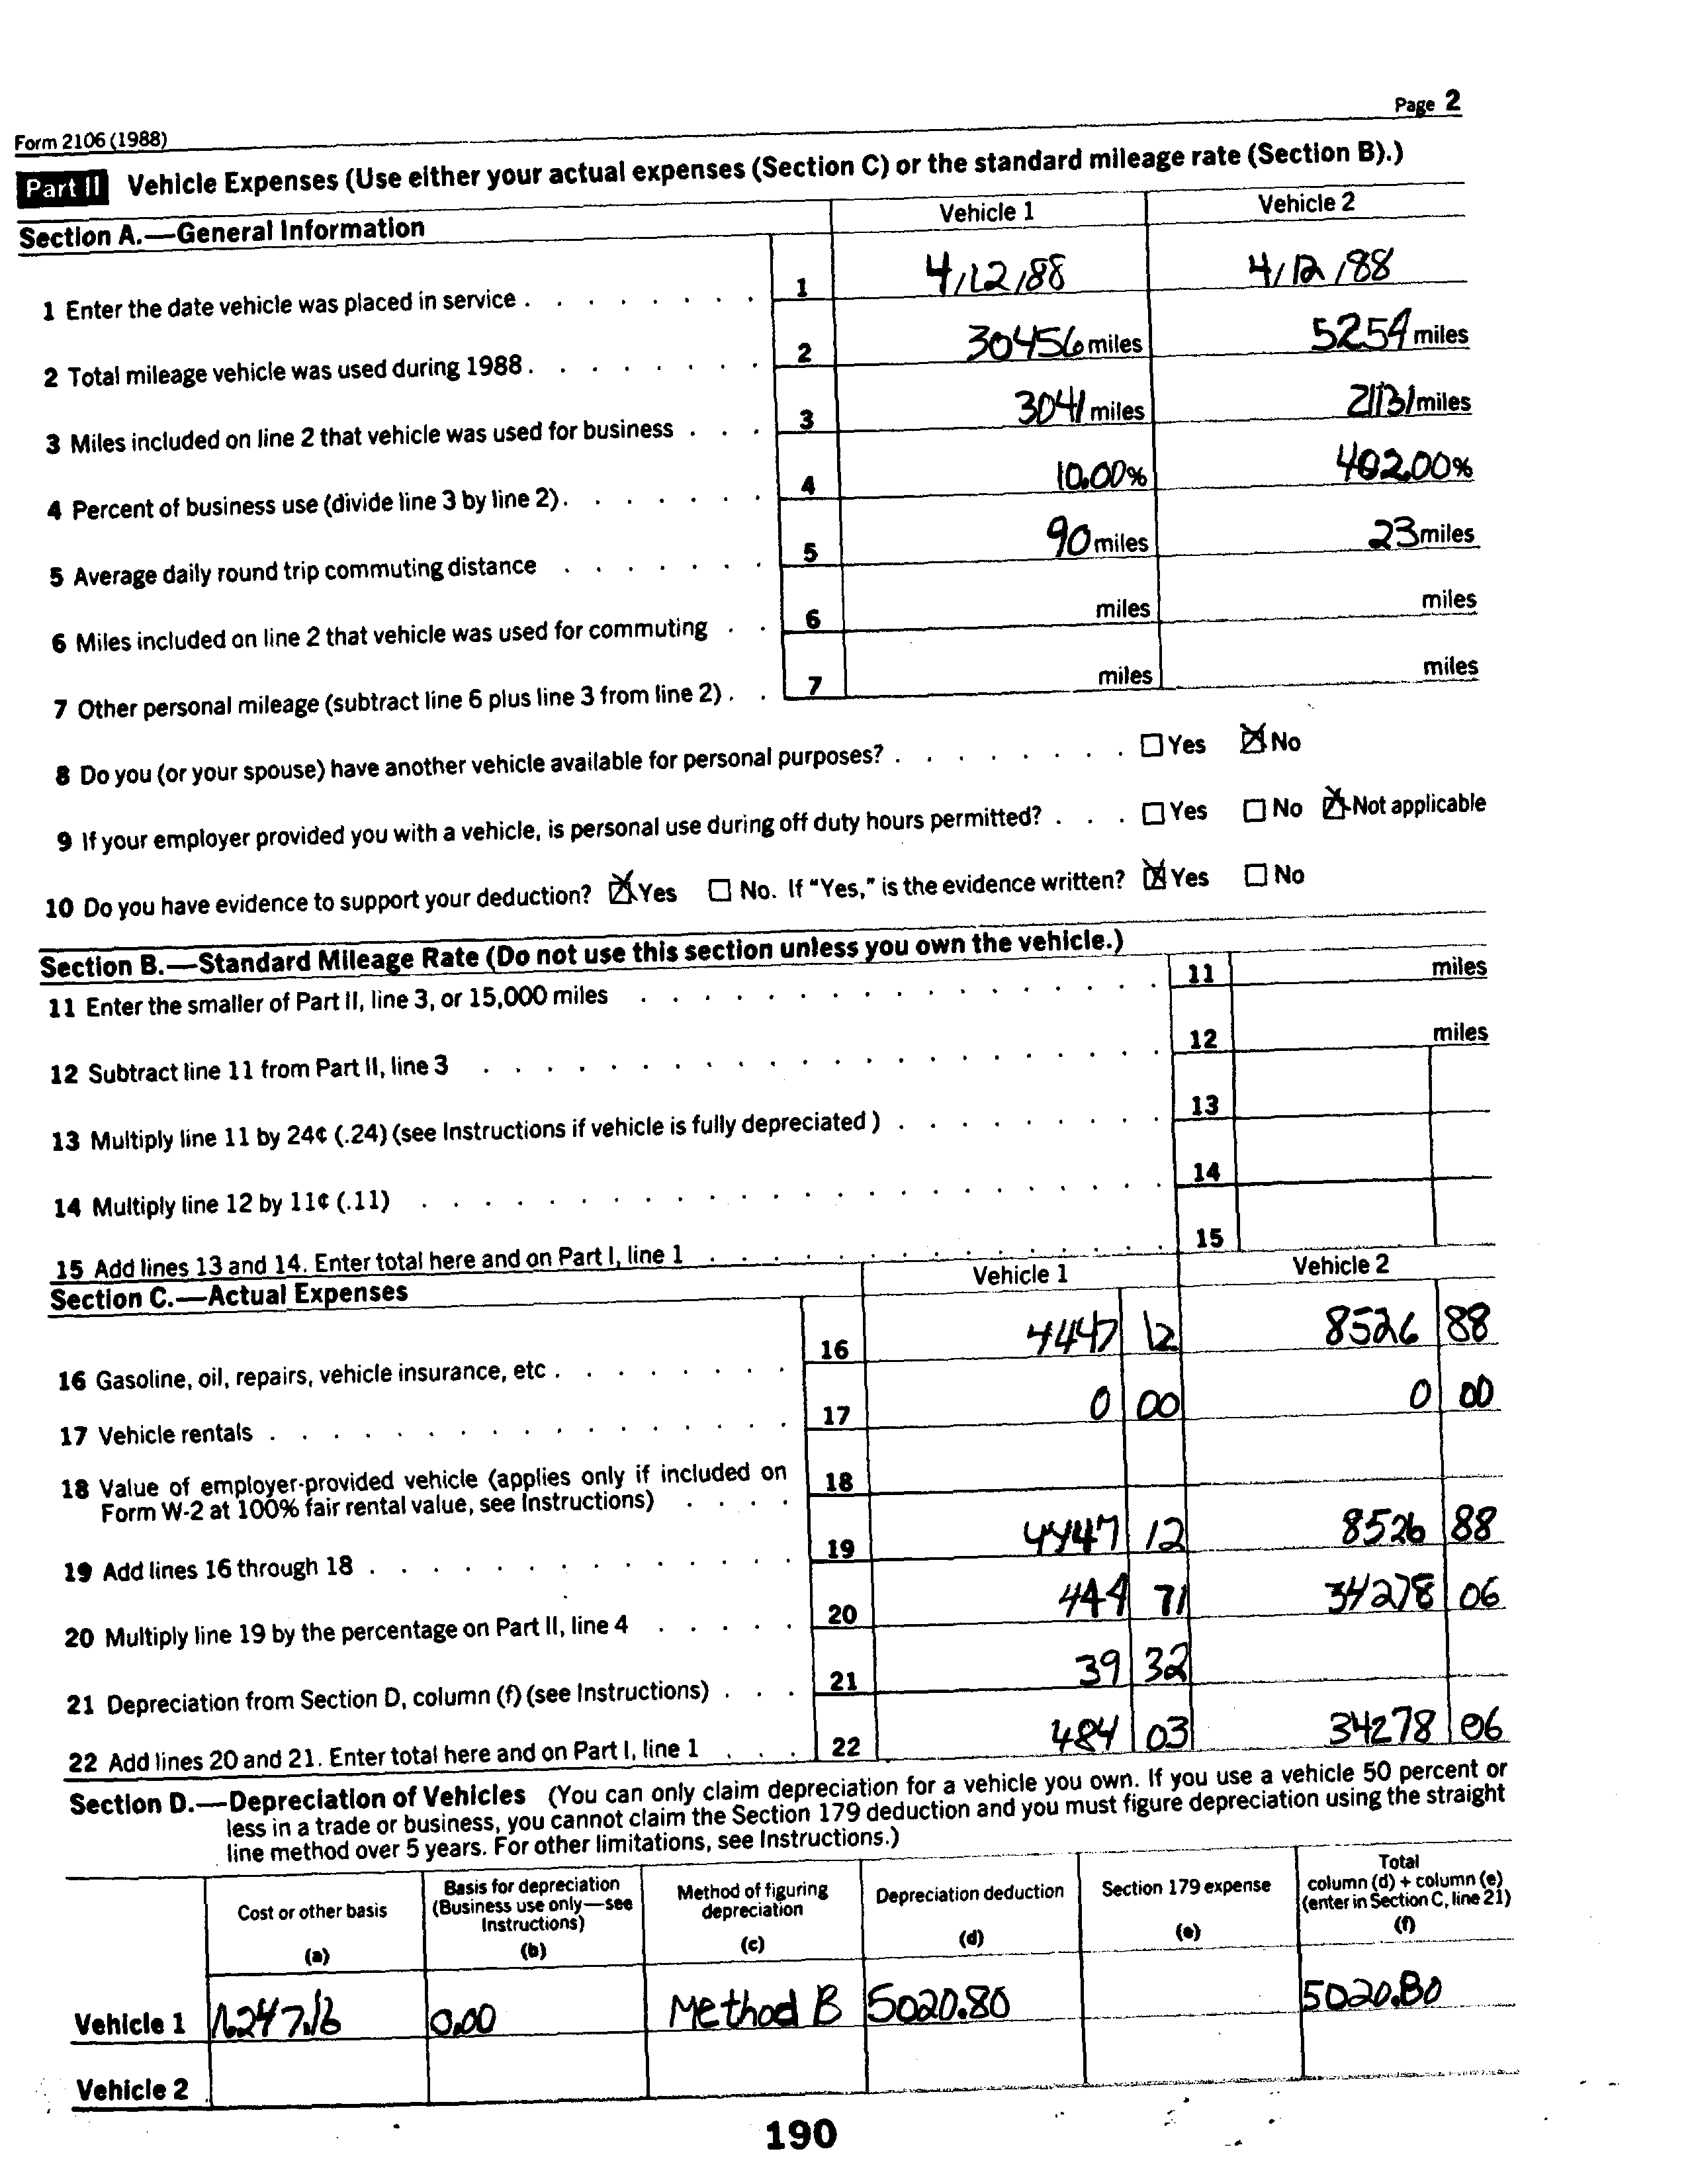 Page 2
Form 2106 (1988)
Part II Vehicle Expenses (Use either your actual expenses (Section C) or the standard mileage rate (Section B).)
Section A.—General Information Vehicle 1 Vehicle 2
1 Enter the date vehicle was placed in service . . . . . . . . 1 4/12/88 4/12/88
2 Total mileage vehicle was used during 1988 . . . . . . . . 2 30456 miles 5254 miles
3 Miles included on line 2 that vehicle was used for business . . . 3 3041 miles 21131 miles
4 Percent of business use (divide line 3 by line 2) . . . . . . . 4 10.00% 402.00%
5 Average daily round trip commuting distance . . . . . . . 5 90 miles 23 miles
6 Miles included on line 2 that vehicle was used for commuting . . 6 miles miles
7 Other personal mileage (subtract line 6 plus line 3 from line 2) . . 7 miles miles
8 Do you (or your spouse) have another vehicle available for personal purposes? . . . . . . . . ☐ Yes ☒ No
9 If your employer provided you with a vehicle, is personal use during off duty hours permitted? . . . ☐ Yes ☐ No ☒ Not applicable
10 Do you have evidence to support your deduction? ☒ Yes ☐ No. If "Yes," is the evidence written? ☒ Yes ☐ No
Section B.—Standard Mileage Rate (Do not use this section unless you own the vehicle.)
11 Enter the smaller of Part II, line 3, or 15,000 miles . . . . . . . . . . . . . . . . . 11 miles
12 Subtract line 11 from Part II, line 3 . . . . . . . . . . . . . . . . . . . . . 12 miles
13 Multiply line 11 by 24¢ (.24) (see Instructions if vehicle is fully depreciated ) . . . . . . . . . 13
14 Multiply line 12 by 11¢ (.11) . . . . . . . . . . . . . . . . . . . . . . . . 14
15 Add lines 13 and 14. Enter total here and on Part I, line 1 . . . . . . . . . . . . . . . 15
Section C.—Actual Expenses Vehicle 1 Vehicle 2
16 Gasoline, oil, repairs, vehicle insurance, etc . . . . . . . . 16 4447 12 8526 88
17 Vehicle rentals . . . . . . . . . . . . . . . . . 17 0 00 0 00
18 Value of employer-provided vehicle (applies only if included on 18
Form W-2 at 100% fair rental value, see Instructions) . . . .
19 Add lines 16 through 18 . . . . . . . . . . . . . . 19 4447 12 8526 88
20 Multiply line 19 by the percentage on Part II, line 4 . . . . . 20 444 71 34278 06
21 Depreciation from Section D, column (f) (see Instructions) . . . 21 39 32
22 Add lines 20 and 21. Enter total here and on Part I, line 1 . . . 22 484 03 34278 06
Section D.—Depreciation of Vehicles (You can only claim depreciation for a vehicle you own. If you use a vehicle 50 percent or
less in a trade or business, you cannot claim the Section 179 deduction and you must figure depreciation using the straight
line method over 5 years. For other limitations, see Instructions.)
Cost or other basis (a)
Basis for depreciation (Business use only—see Instructions) (b)
Method of figuring depreciation (c)
Depreciation deduction (d)
Section 179 expense (e)
Total column (d) + column (e) (enter in Section C, line 21) (f)
Vehicle 1 0.00 Method B 5020.80 5020.80
Vehicle 2
190